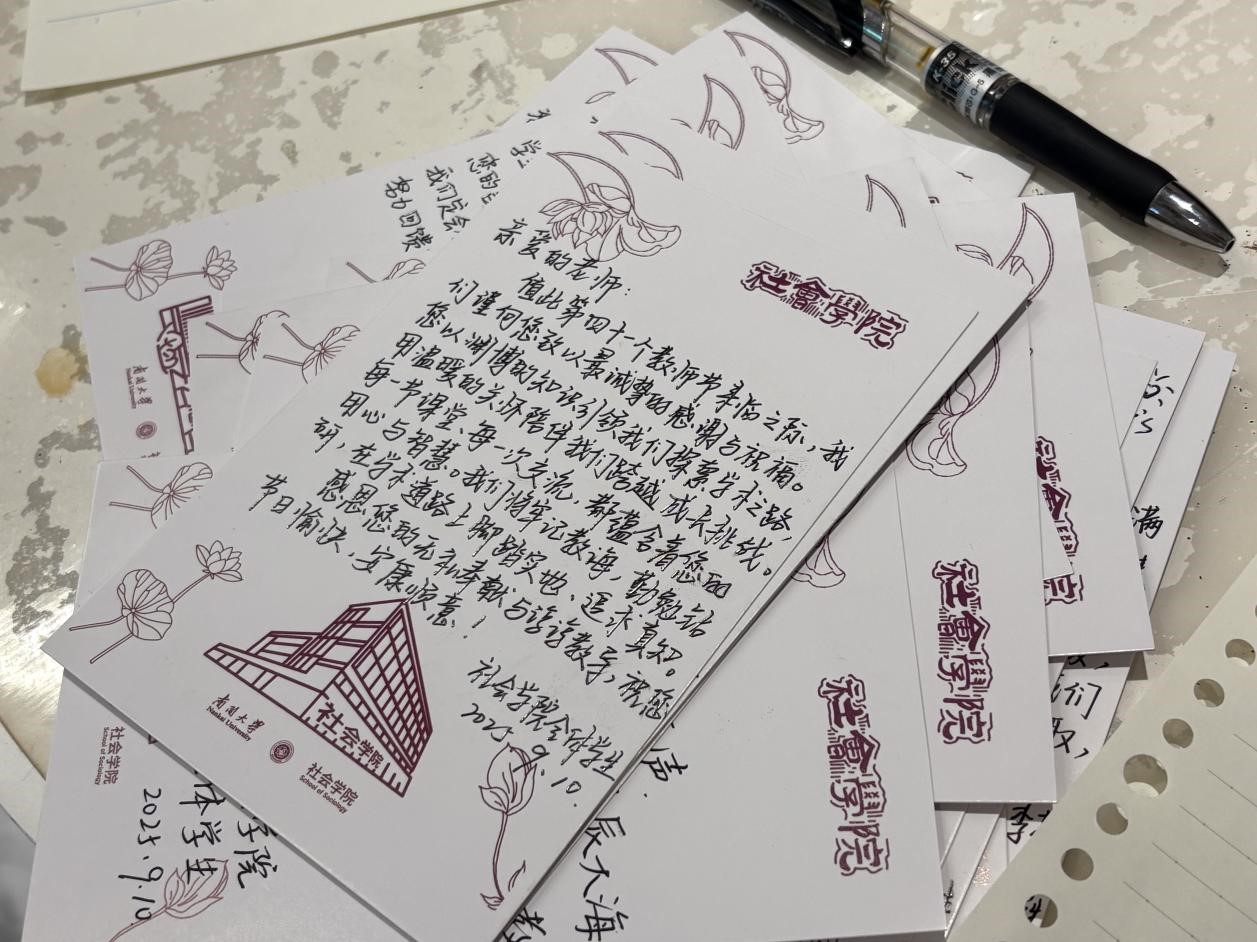 社會學院
亲爱的老师：
值此第四十个教师节来临之际，我
们谨向您致以最诚挚的感谢与祝福。
您以渊博的知识引领我们探索学术之路，
用温暖的关怀陪伴我们跨越成长挑战。
每一节课堂、每一次交流，都蕴含着您的
用心与智慧。我们将牢记教诲，勤勉钻
研，在学术道路上脚踏实地、追求真知。
感恩您的无私奉献与谆谆教导，祝您
节日愉快，安康顺意！
社会学院全体学生
2025.9.10.
社会学院
南開大學
Nankai University
社会学院
School of Sociology
您的
我们定会
努力回馈
南開大學
Nankai University
社会学院
School of Sociology
学院
体学生
2025.9.10
声.
辰大海
社會學院
社會學院
社會
院
满
们
K-35